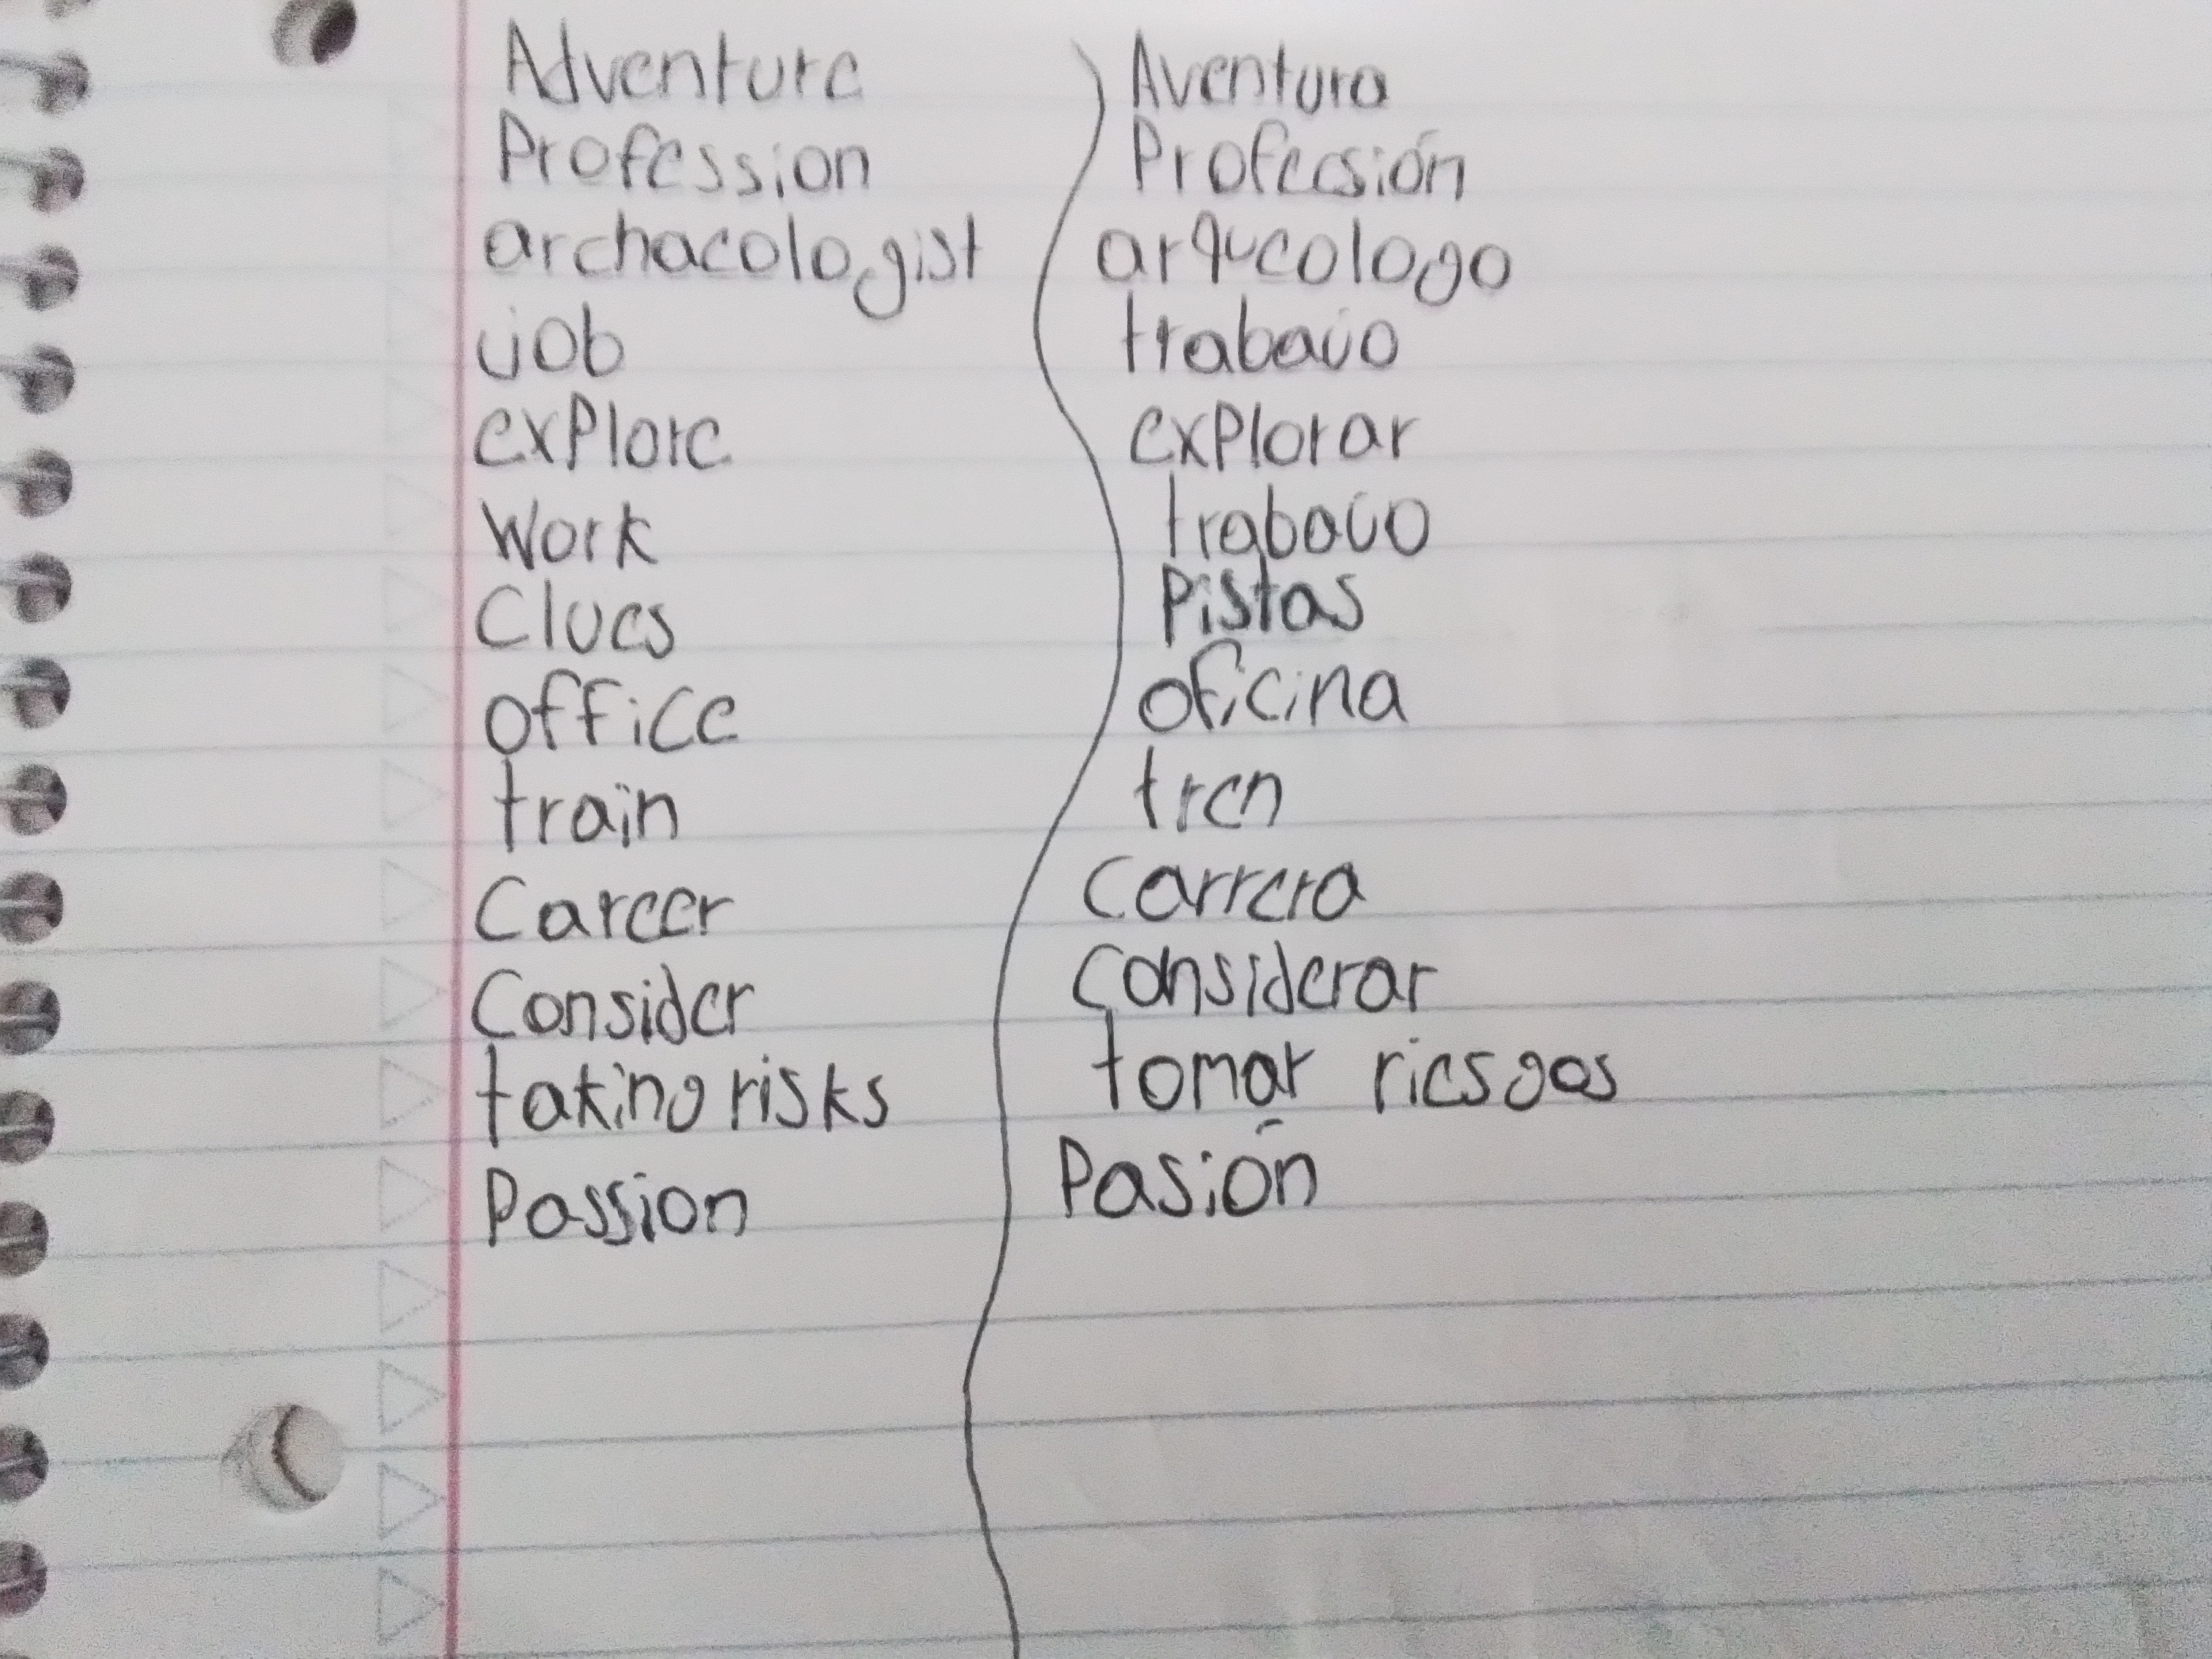 Adventure Aventura
Profession Profesión
archaeologist arqueologo
job trabajo
explore explorar
Work trabajo
Clues Pistas
office oficina
train tren
Career Carrera
Consider Considerar
taking risks tomar riesgos
Passion Pasión